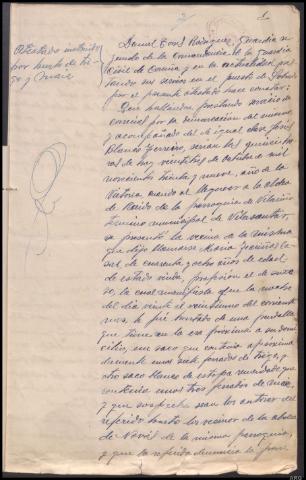 1
Atestado instruido
por hurto de tri-
go y maiz
Daniel Rodriguez, Guardia se-
gundo de la Comandancia de la Guardia
Civil de Coruña y en la actualidad pres-
tando sus servicios en el puesto de
por el presente atestado hace constar:
Que hallandose prestando servicio de
por la demarcacion del mismo
y acompañado del de igual clase José
Blanco Ferreiro, serian las quince ho-
ras de hoy veintitres de octubre de mil
novecientos treinta y nueve, año de la
Victoria, cuando al llegar a la aldea
de de la parroquia de
termino municipal de Vilasantar,
se presentó la vecina de la misma
que dijo llamarse Maria
de cuarenta y ocho años de edad
de estado viuda, profesion el de su se-
xo la cual manifiesta que la noche
del dia veinte al veintiuno del corriente
mes, le fué hurtado de una
que tiene en la era próxima a su domi-
cilio, un saco que contenia aproxima-
damente unos siete ferrados de trigo, y
otro saco blanco de estopa remendado que
contenia unos tres ferrados de maiz
y que sospecha sean los autores del
referido hurto los vecinos de la aldea
de de la misma parroquia,
y que la referida denuncia la